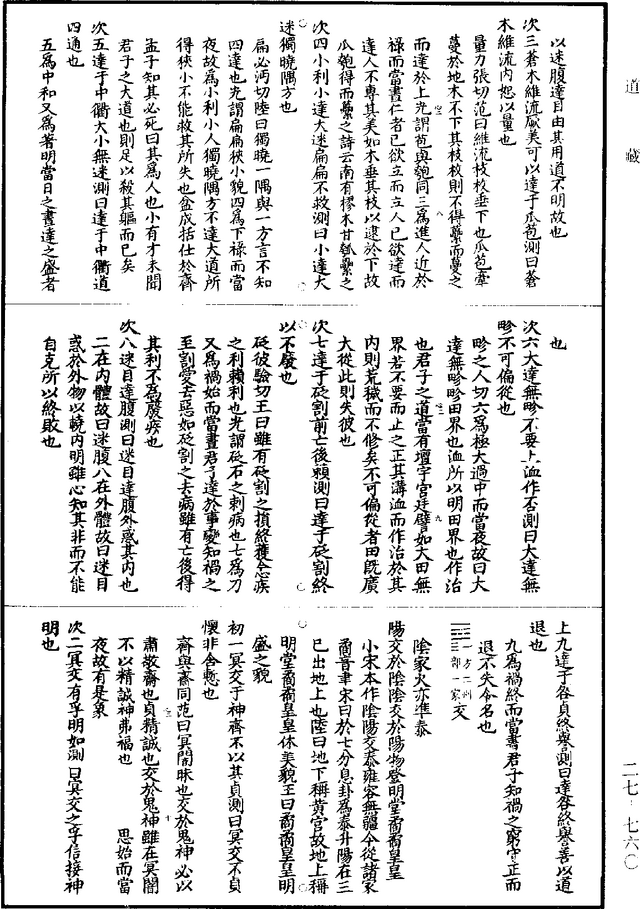 道藏
以迷腹達目由其用道不明故也
次三蒼木維流厥美可以達于瓜苞測曰蒼
木維流内恕以量也
量力張切范曰維流枝枚垂下也瓜苞牽
蔓於地木不下其枝枚則不得蘽而蔓之
而達於上光謂苞與匏同三爲進人近於
祿而當晝仁者已欲立而立人已欲達而
達人不專其美如木垂其枝以逮於下故
瓜匏得而蘽之詩云南有樛木甘瓠蘽之
次四小利小達大迷扁扁不救測曰小達大
迷獨曉隅方也
扁必沔切陸曰獨曉一隅與一方言不知
四達也光謂扁扁狹小貌四爲下祿而當
夜故爲小利小人獨曉隅方不達大道所
得狹小不能救其所失也盆成括仕於齊
孟子知其必死曰其爲人也小有才未聞
君子之大道也則足以殺其軀而已矣
次五達于中衢大小無迷測曰達于中衢道
四通也
五爲中和又爲著明當日之晝達之盛者
也
次六大達無畛不要止洫作否測曰大達無
畛不可偏從也
畛之人切六爲極大過中而當夜故曰大
達無畛畛田界也洫所以明田界也作治
也君子之道當有壇宇宮廷譬如大田無
界若不要而止之正其溝洫而作治於其
内則荒穢而不修矣不可偏從者田既廣
大從此則失彼也
次七達于砭割前亡後賴測曰達于砭割終
以不廢也
砭彼驗切王曰雖有砭割之損終獲愈疾
之利賴利也光謂砭石之刺病也七爲刀
又爲禍始而當晝君子達於事變知禍之
至割愛去惡如砭割之去病雖有亡後得
其利不爲廢疾也
次八迷目達腹測曰迷目達腹外惑其内也
二在内體故曰迷腹八在外體故曰迷目
惑於外物以蛲内明雖心知其非而不能
自克所以終敗也
上九達于咎貞終譽測曰達咎終譽善以道
退也
九爲禍終而當晝君子知禍之窮守正而
退不失令名也
一方二州三部一家交
陰家火亦準泰
陽交於陰陰交於陽物登明堂矞矞皇皇
小宋本作陰陽交泰雍容無疆今從諸家
矞音聿宋曰於七分息卦爲泰升陽在三
已出地上也陸曰地下稱黄宫故地上稱
明堂矞矞皇皇休美貌王曰矞矞皇皇明
盛之貌
初一冥交于神齊不以其貞測曰冥交不貞
懷非含慙也
齊與齋同范曰冥闇昧也交於鬼神必以
肅敬齋也貞精誠也交於鬼神雖在冥闇
不以精誠神弗福也　思始而當
夜故有是象
次二冥交有孚明如測曰冥交之孚信接神
明也
二七·七六〇